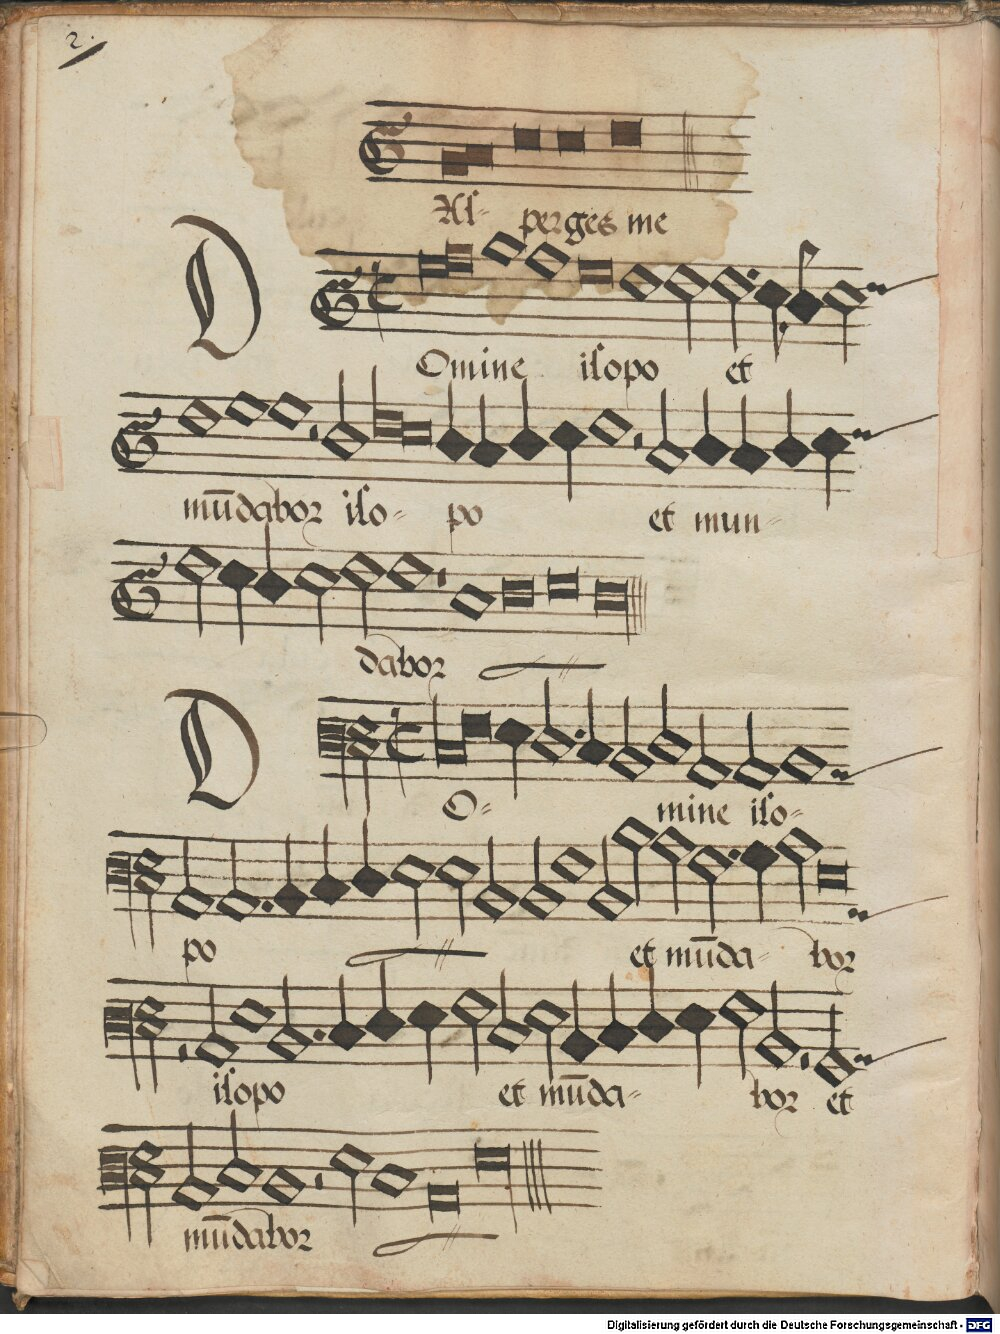 2.
Asperges me
DOmine isopo et
mūdabor iso- po et mun-
dabor
DO- mine iso-
po et mūda- bor
isopo et mūda- bor et
mūdabor
Digitalisierung gefördert durch die Deutsche Forschungsgemeinschaft - DFG